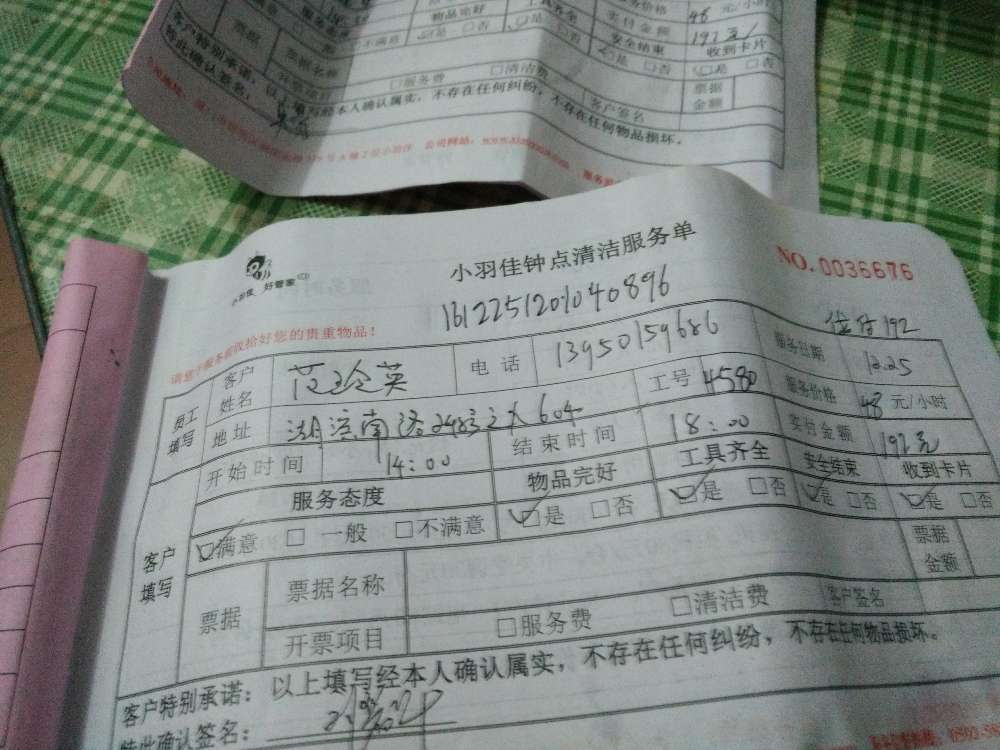 物品完好 工具齐全 实付金额 48 元/小时
不满意 是 否 是 否 安全结束 192元
票据 票据名称 是 否 收到卡片
是 否
服务费 清洁费 票据
金额
客户特别承诺：以上填写经本人确认属实，不存在任何纠纷，不存在任何物品损坏。
特此确认签名： 客户签名
公司网站：
小羽佳 好管家
小羽佳钟点清洁服务单
NO.0036676
1612251201040896
请您于服务前收拾好您的贵重物品！
192
员工填写 客户姓名 范玲英 电话 13950159686 服务日期 12.25
地址 604 工号 4580 服务价格 48 元/小时
开始时间 14:00 结束时间 18:00 实付金额 192元
客户填写 服务态度 物品完好 工具齐全 安全结束 收到卡片
满意 一般 不满意 是 否 是 否 是 否 是 否
票据 票据名称 票据金额
开票项目 服务费 清洁费 客户签名
客户特别承诺：以上填写经本人确认属实，不存在任何纠纷，不存在任何物品损坏。
特此确认签名：